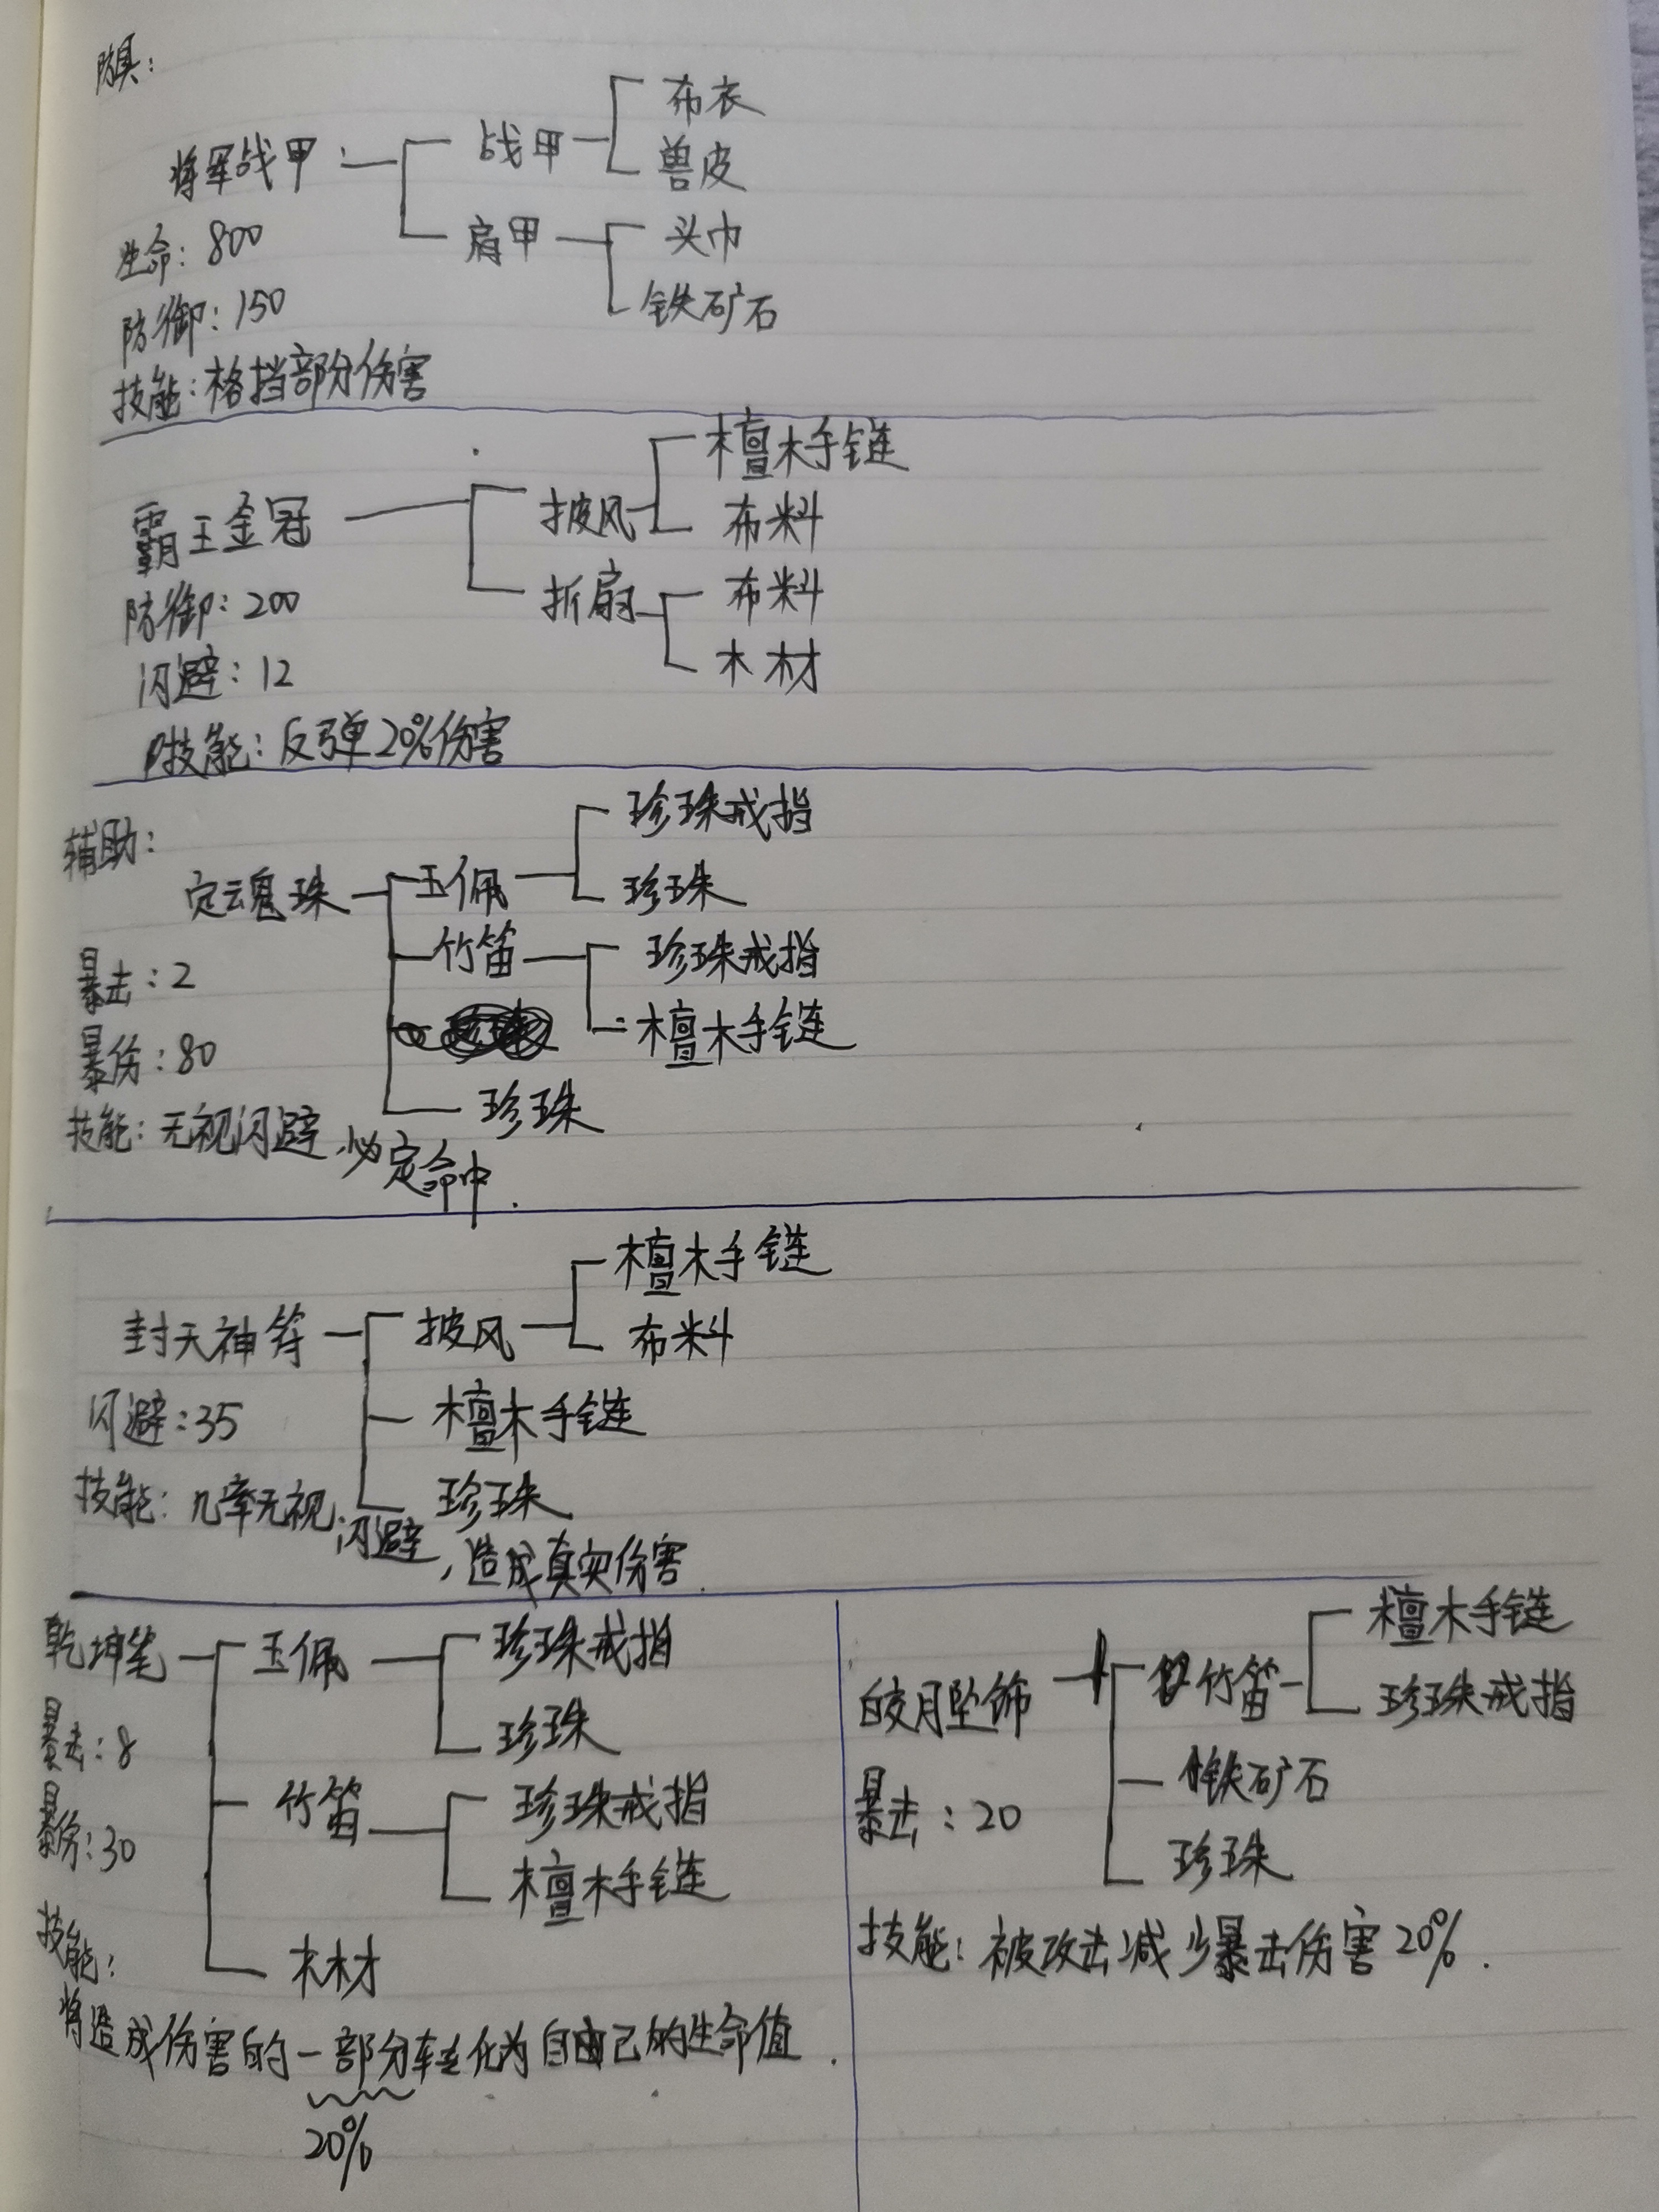 防具：
将军战甲：
战甲
布衣
兽皮
肩甲
头巾
铁矿石
生命：800
防御：150
技能：格挡部分伤害
霸王金冠
披风
檀木手链
布料
折扇
布料
木材
防御：200
闪避：12
技能：反弹20%伤害
辅助：
定魂珠
玉佩
珍珠戒指
珍珠
竹笛
珍珠戒指
檀木手链
珍珠
暴击：2
暴伤：80
技能：无视闪避，必定命中．
封天神符
披风
檀木手链
布料
檀木手链
珍珠
闪避：35
技能：几率无视闪避，造成真实伤害．
乾坤笔
玉佩
珍珠戒指
珍珠
竹笛
珍珠戒指
檀木手链
木材
暴击：8
暴伤：30
技能：
将造成伤害的一部分转化为自己的生命值．
20%
皎月坠饰
竹笛
檀木手链
珍珠戒指
铁矿石
珍珠
暴击：20
技能：被攻击减少暴击伤害20%．